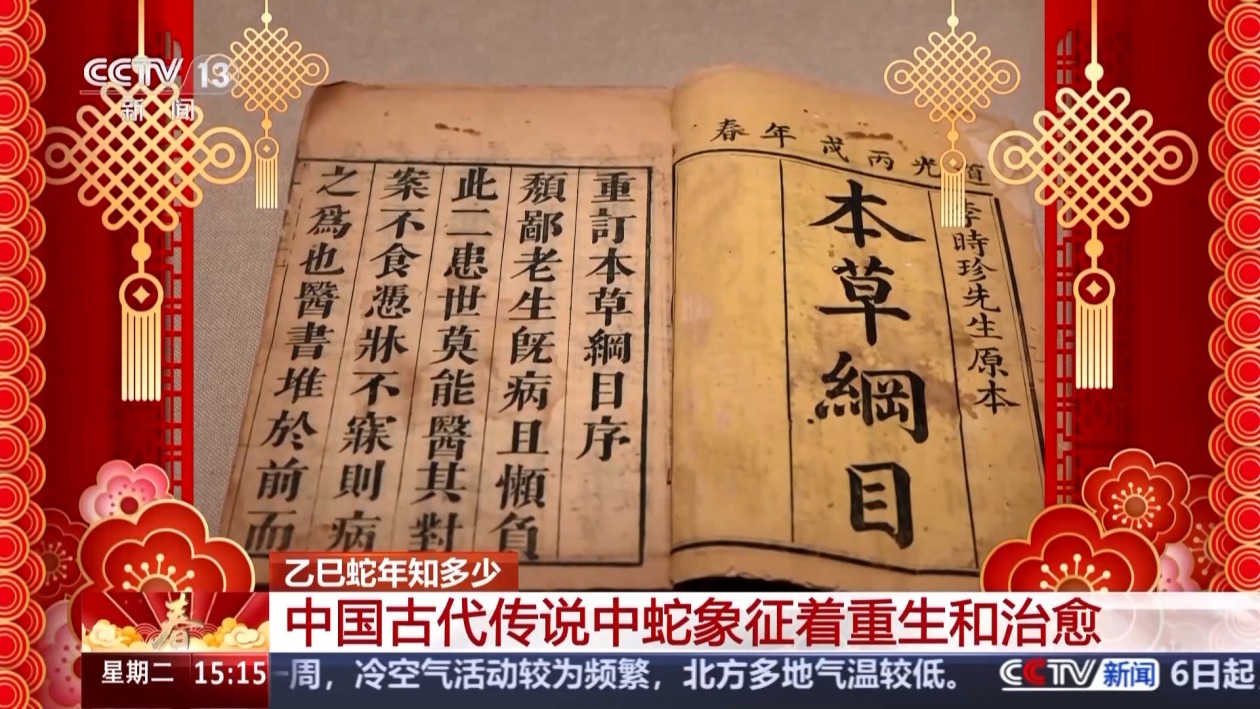 CCTV 13
新闻
道光丙戌年春
李時珍先生原本
本草綱目
重訂本草綱目序
頹鄙老生既病且懶負
此二患世莫能醫其對
案不食憑牀不寐則病
之爲也醫書堆於前而
乙巳蛇年知多少
春
中国古代传说中蛇象征着重生和治愈
星期二 15:15 一周，冷空气活动较为频繁，北方多地气温较低。 CCTV新闻 6日起